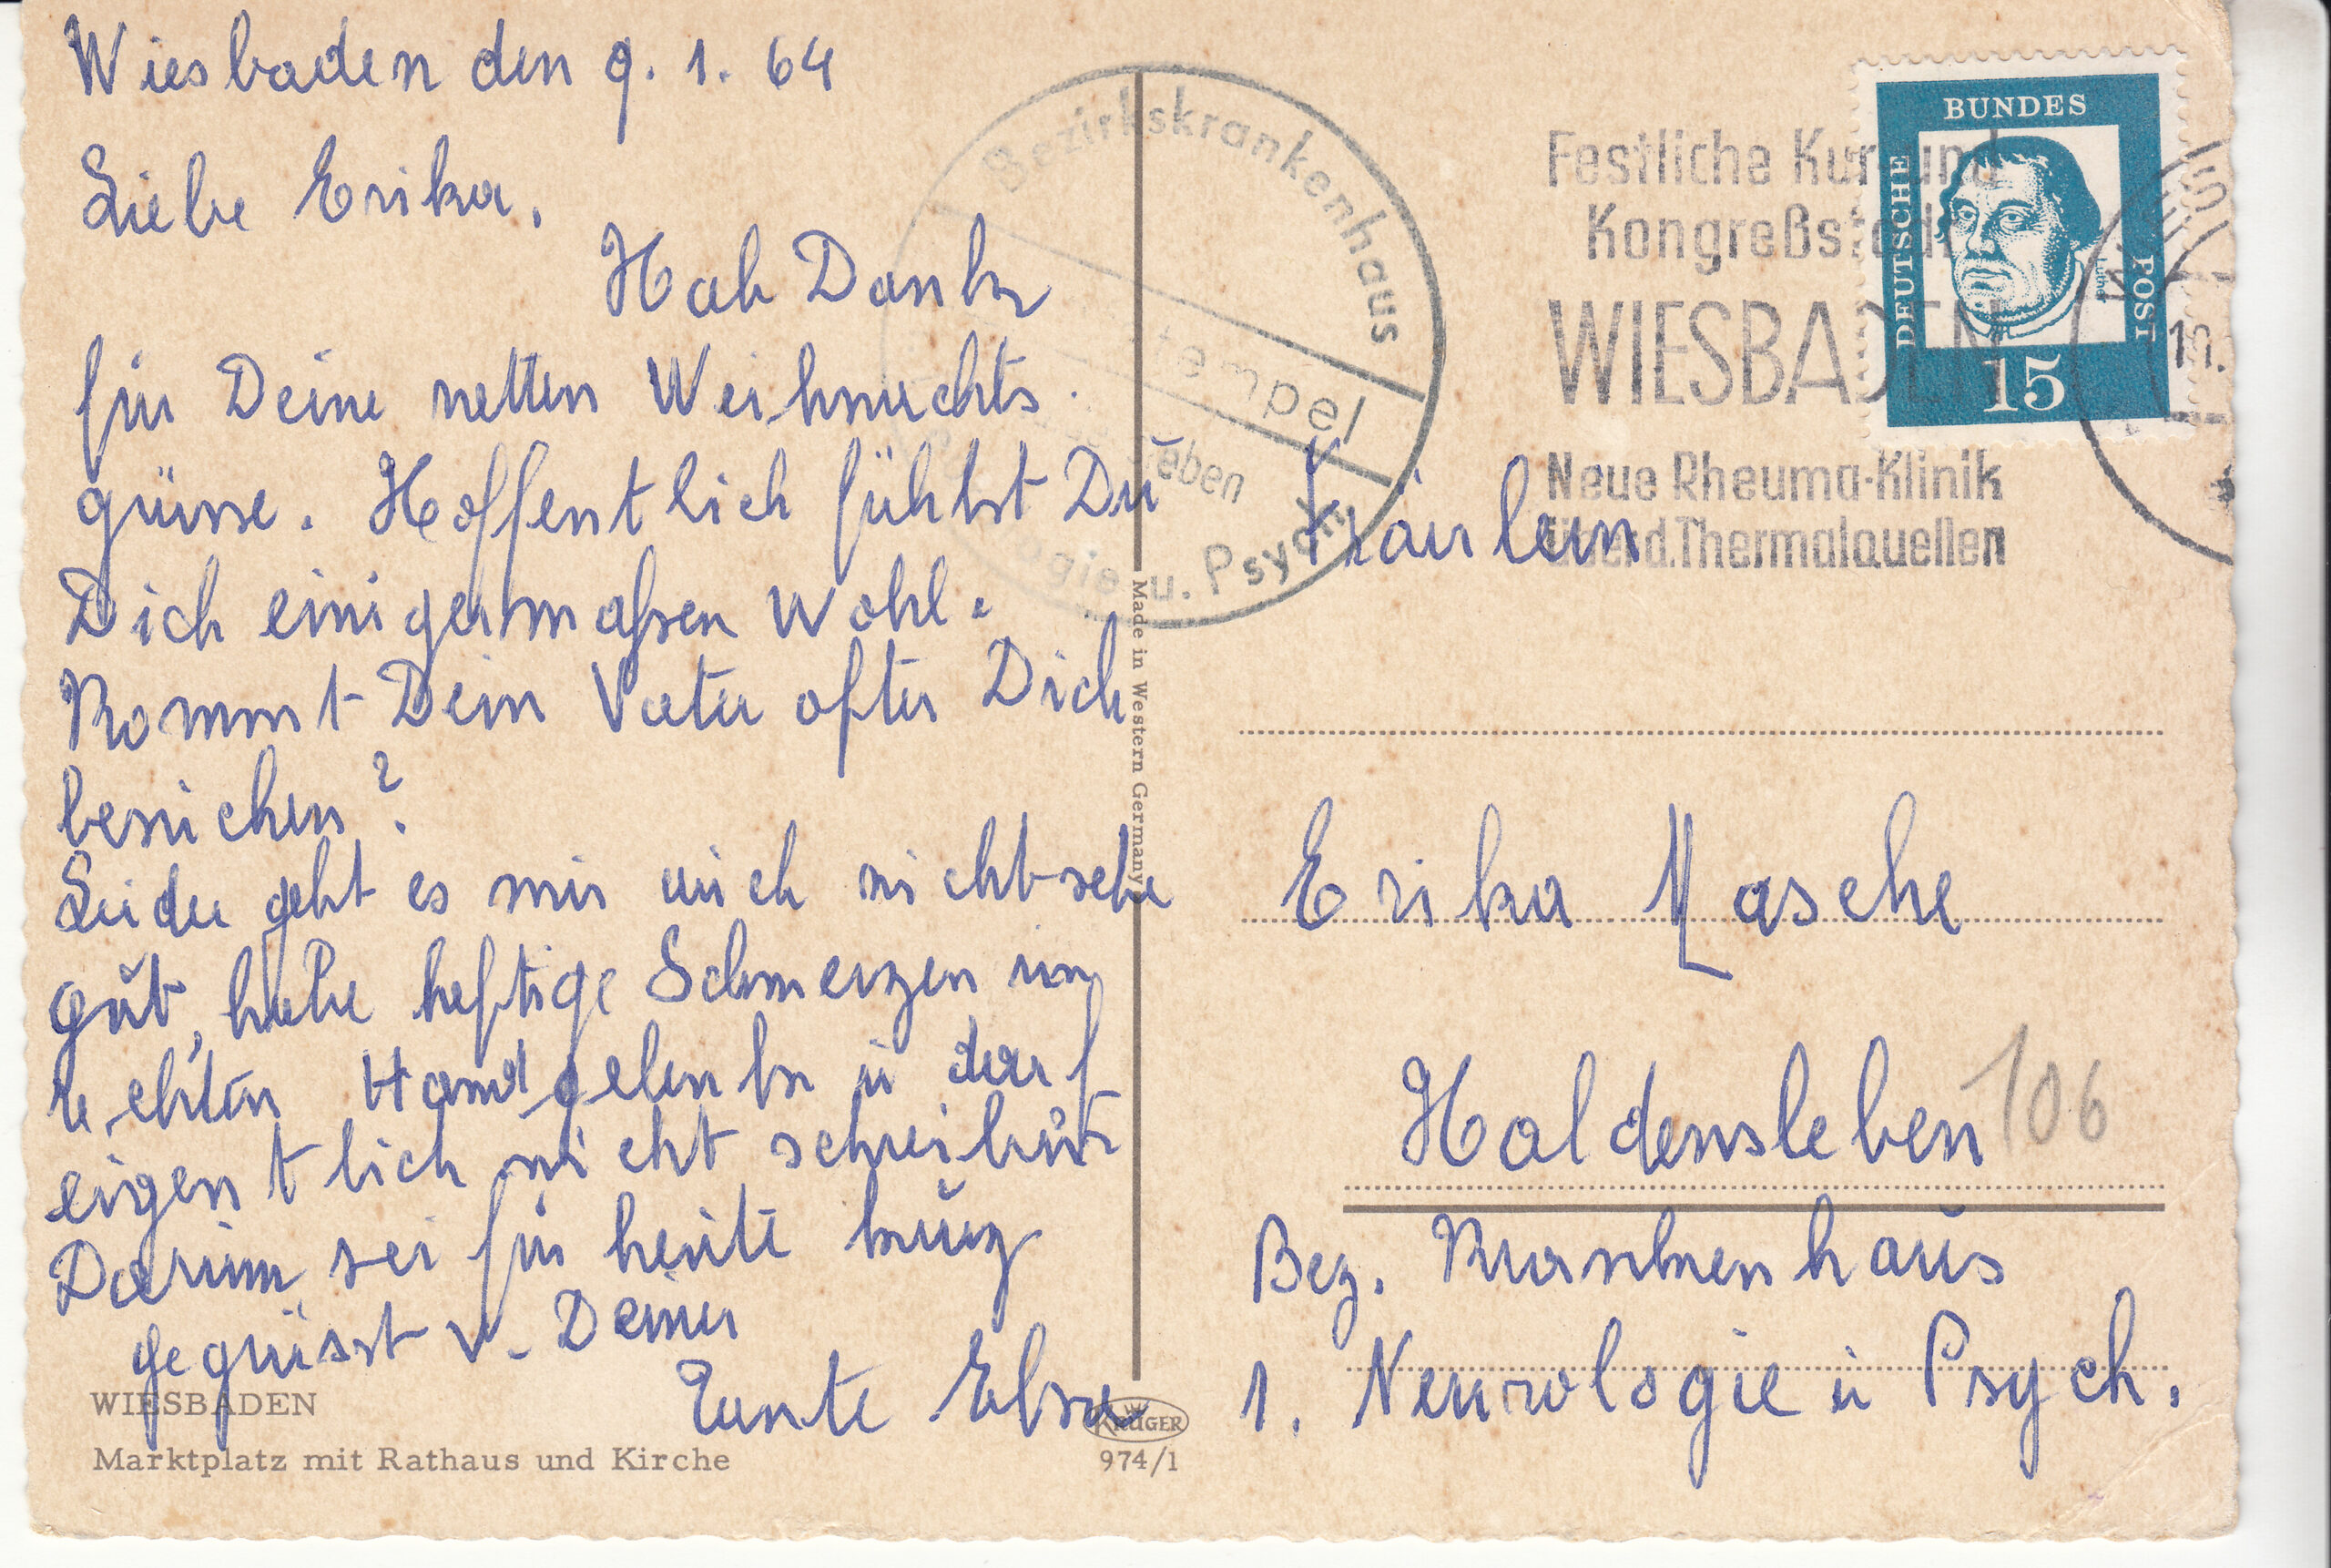 Wiesbaden den 9. 1. 64
Liebe Erika,
Hab Dank
für Deine netten Weihnachts-
grüsse. Hoffentlich fühlst Du
Dich einigermaßen wohl.
Kommt Dein Vater öfter Dich
besuchen?
Leider geht es mir auch nicht sehr
gut, habe heftige Schmerzen im
rechten Handgelenk u darf
eigentlich nicht schreiben
Darum sei für heute kurz
gegrüsst v. Deiner
Tante Elsa
WIESBADEN
Marktplatz mit Rathaus und Kirche
KRÜGER
974/1
Made in Western Germany
Bezirkskrankenhaus
tempel
leben
ogie u. Psych
Festliche Kur und
Kongreßstadt
WIESBADEN
Neue Rheuma-Klinik
über d. Thermalquellen
DEUTSCHE
BUNDES
POST
Luther
15
Fräulein
Erika Masche
Haldensleben
106
Bez. Krankenhaus
1. Neurologie u Psych.